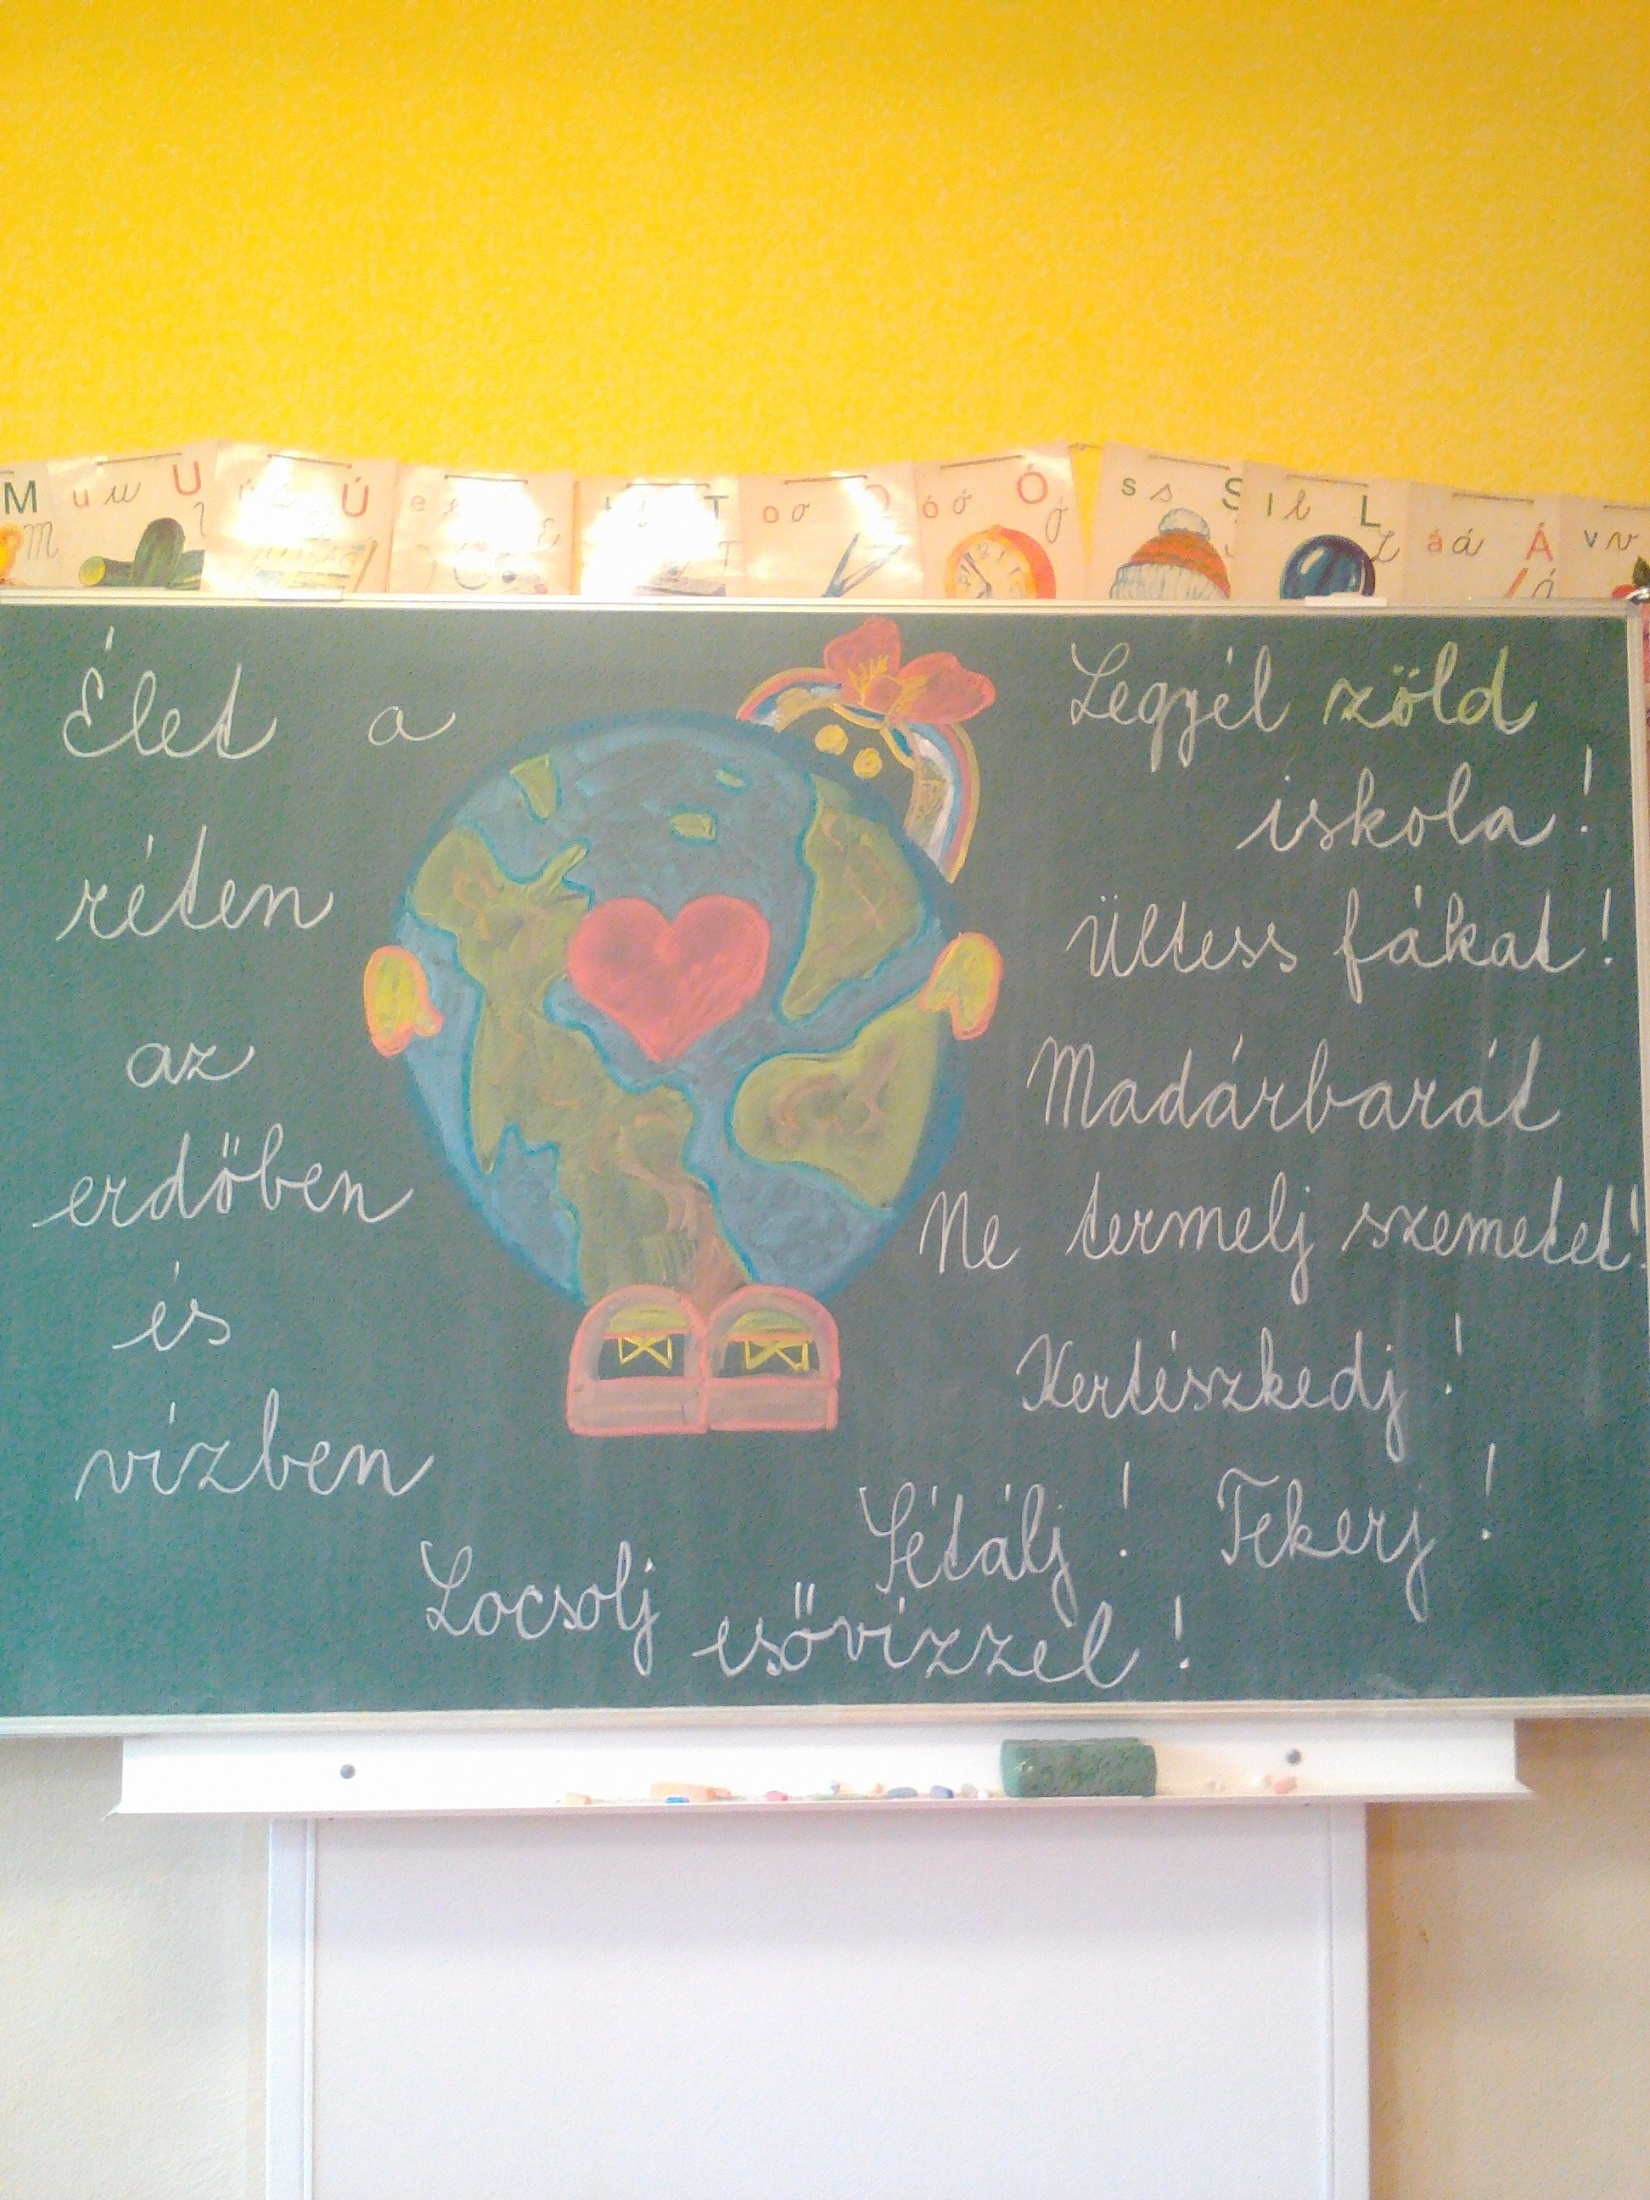 M u u U Ú e e o o ó ó Ó s s S l l L á á Á v v
M T ó L Á
Élet a
réten
az
erdőben
és
vízben
Legyél zöld
iskola!
Ültess fákat!
Madárbarát
Ne termelj szemetet!
Kertészkedj!
Sétálj! Tekerj!
Locsolj esővízzel!